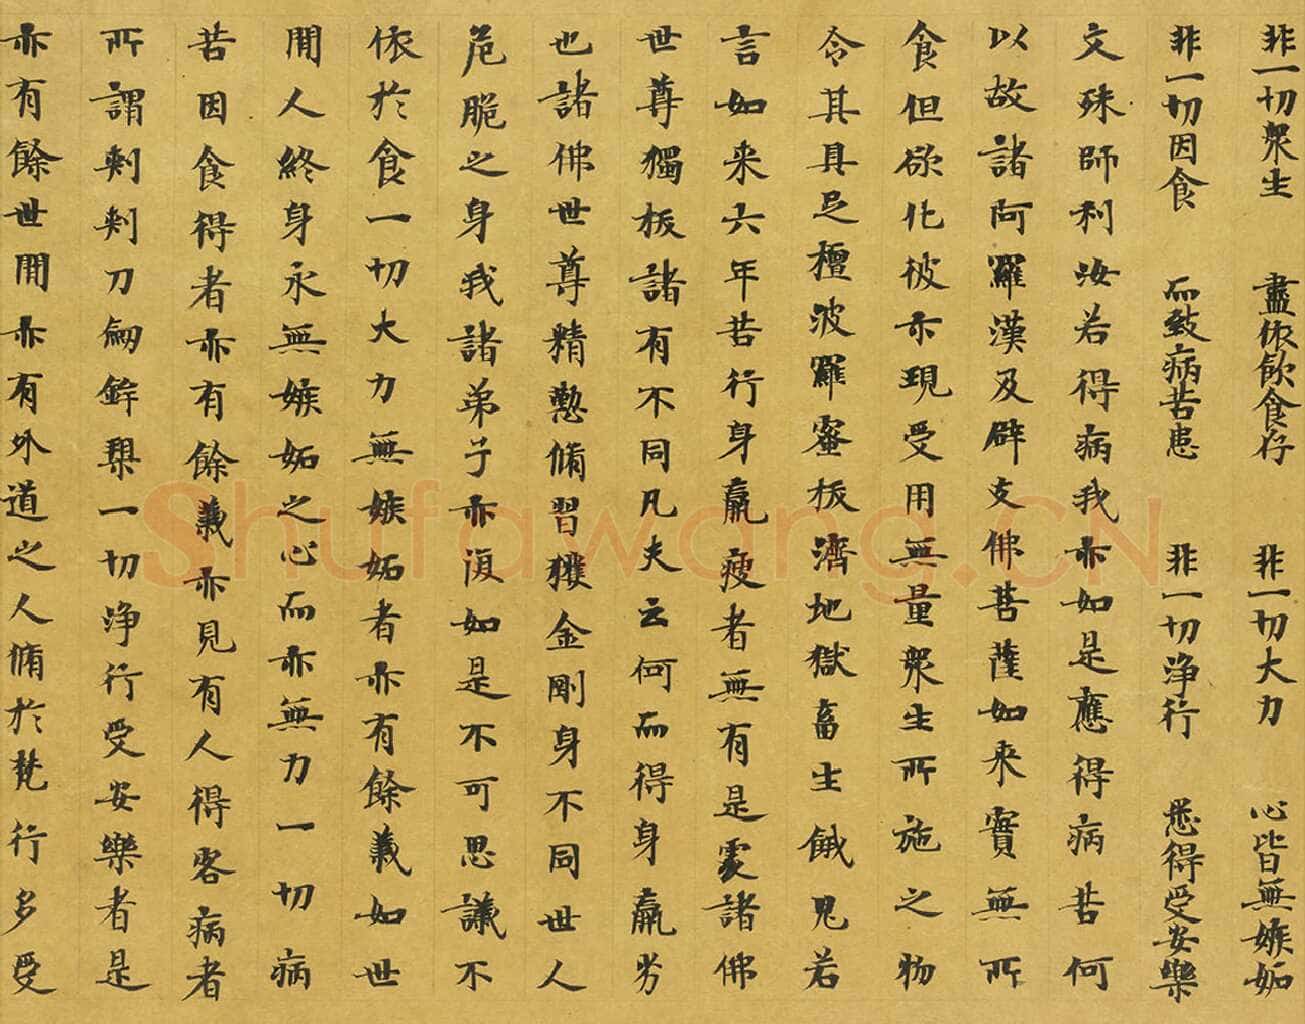 非一切衆生 盡依飲食存 非一切大力 心皆無嫉妬
非一切因食 而致病苦患 非一切淨行 悉得受安樂
文殊師利汝若得病我亦如是應得病苦何
以故諸阿羅漢及辟支佛菩薩如来實無所
食但欲化彼亦現受用無量衆生所施之物
令其具足檀波羅蜜拔濟地獄畜生餓鬼若
言如来六年苦行身羸瘦者無有是處諸佛
世尊獨拔諸有不同凡夫云何而得身羸劣
也諸佛世尊精懃脩習獲金剛身不同世人
危脆之身我諸弟子亦復如是不可思議不
依於食一切大力無嫉妬者亦有餘義如世
間人終身永無嫉妬之心而亦無力一切病
苦因食得者亦有餘義亦見有人得客病者
所謂刺刺刀劒鉾槊一切淨行受安樂者是
亦有餘世間亦有外道之人脩於梵行多受
Shufawang.CN